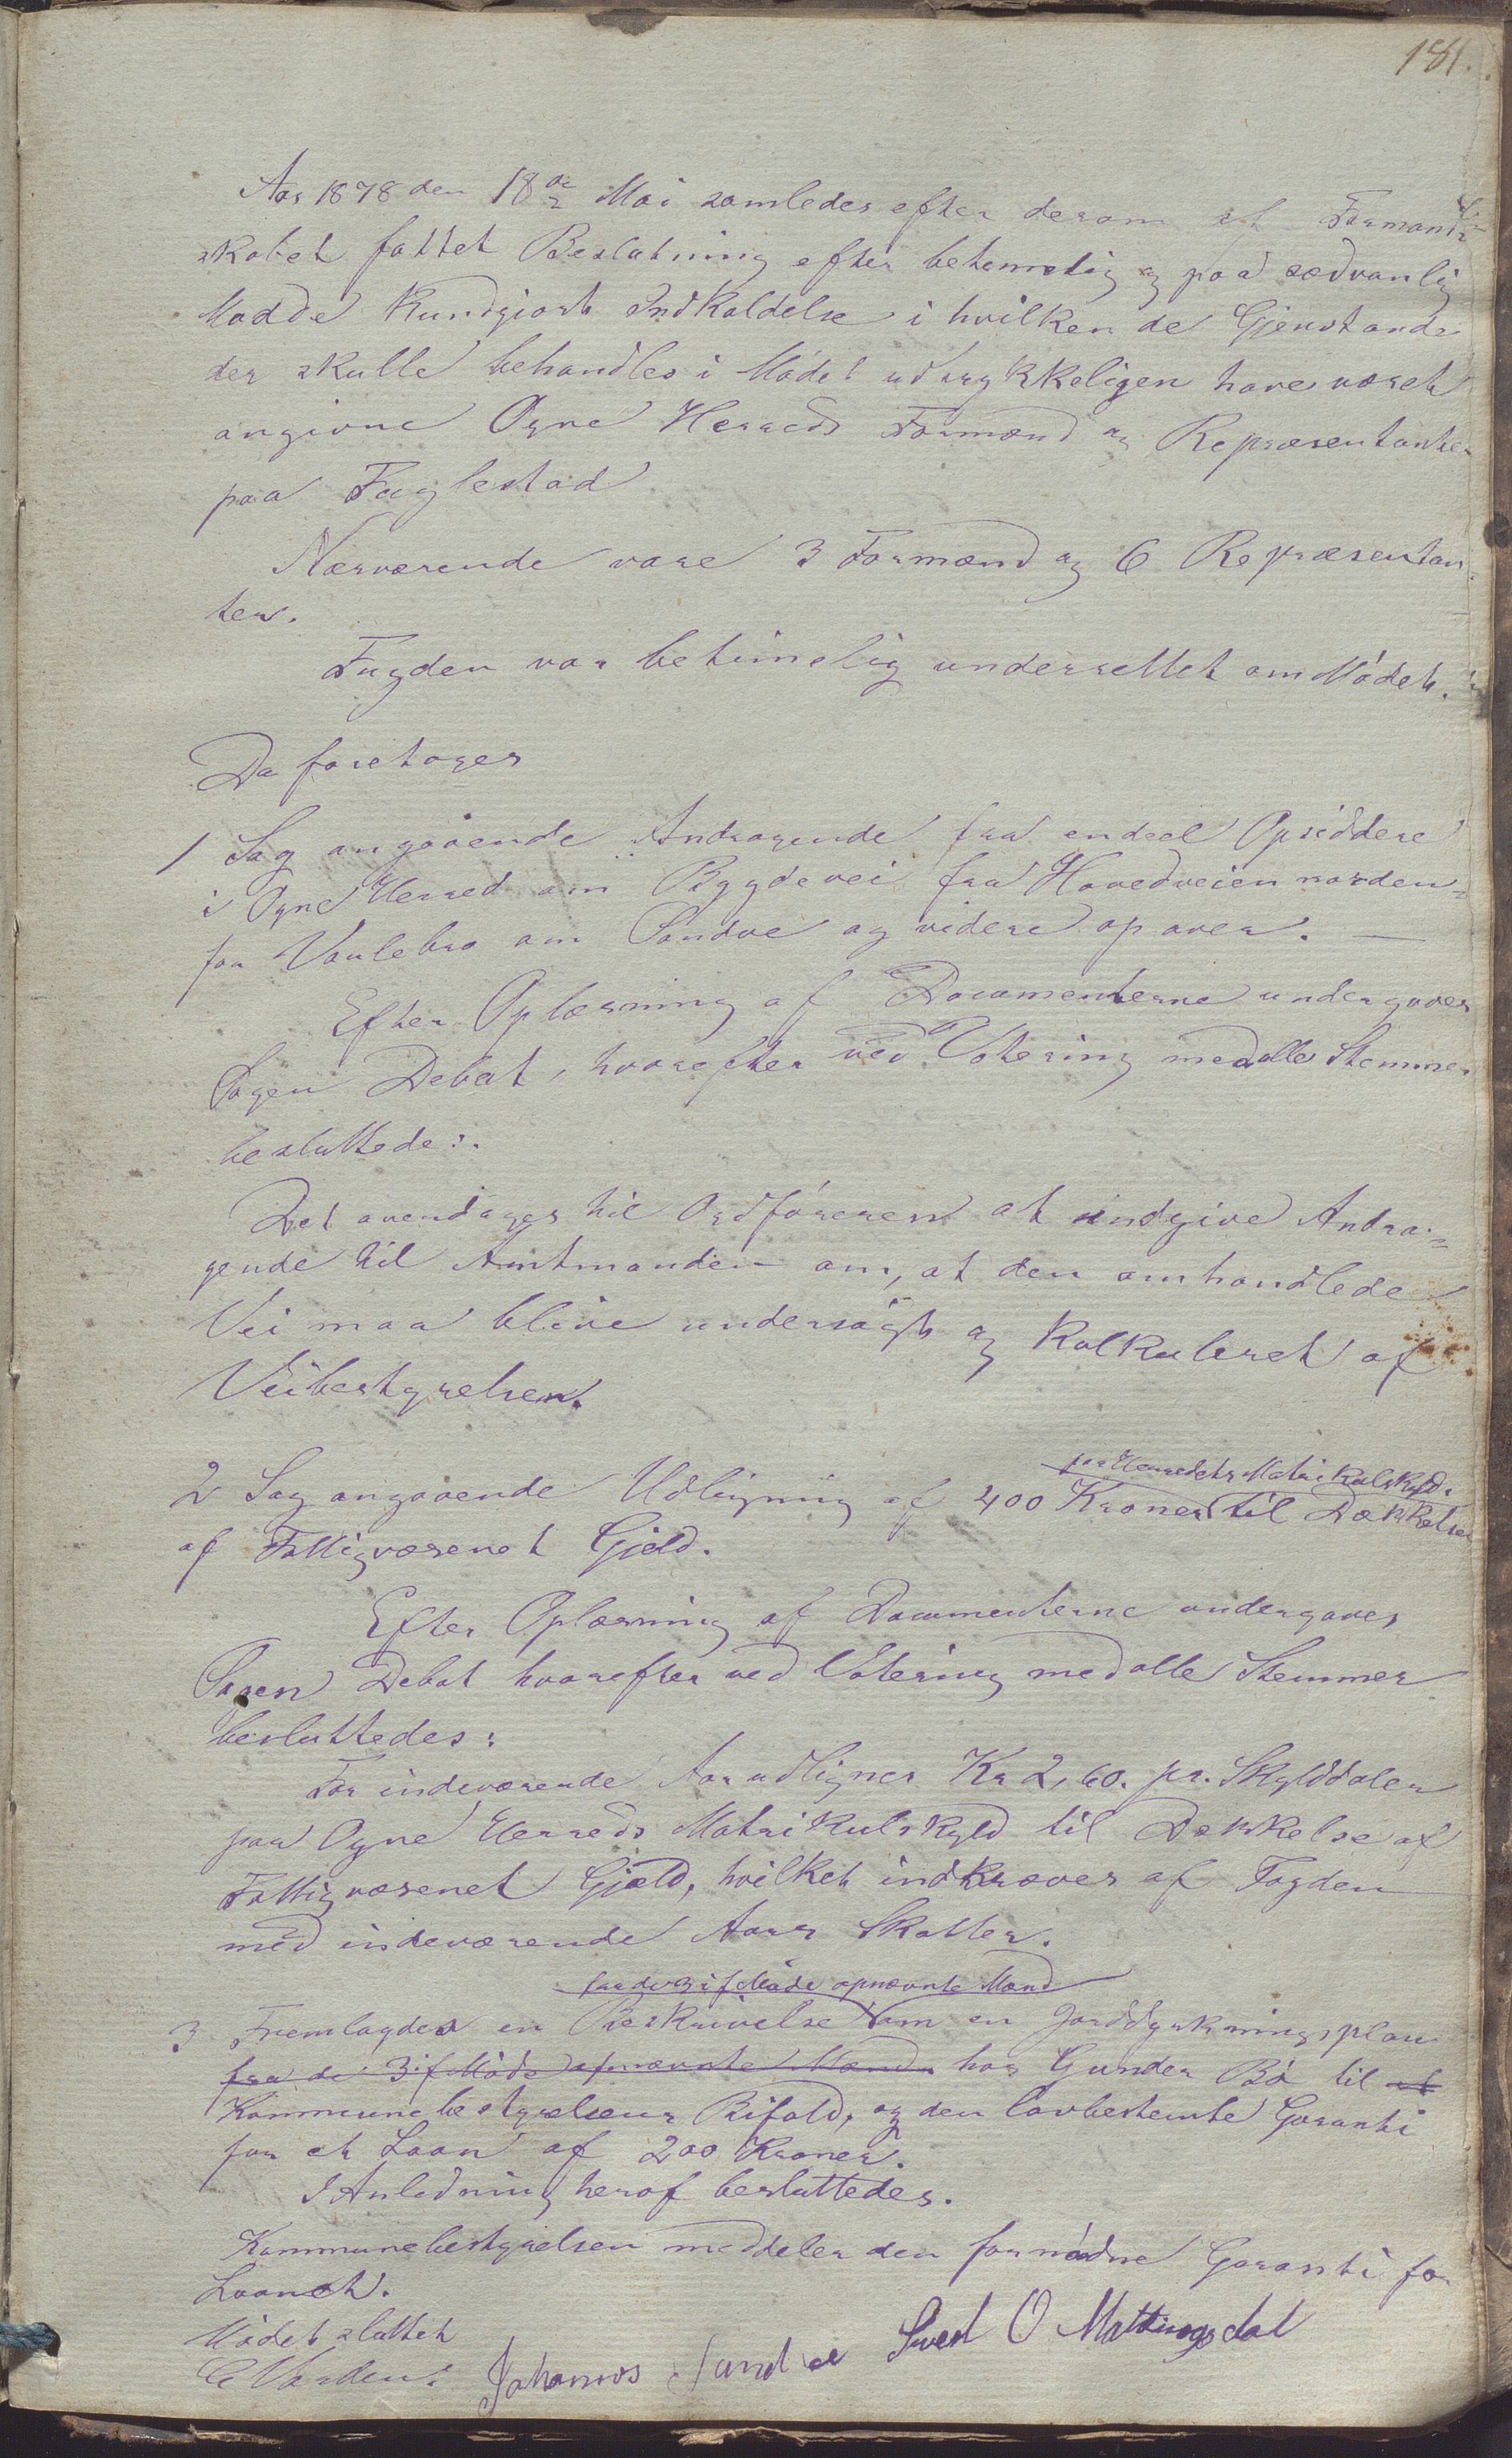 181.
Aar 1878 den 18de Mai samledes efter derom af Formand-
skabet fattet Beslutning efter betimelig og paa sædvanlig
Maade Kundgjort Indkaldelse i hvilken de Gjenstande
der skulle behandles i Mödet udtrykkeligen have været
angivne Ogne Herreds Formænd og Repræsentanter
paa Fuglestad
Nærværende vare 3 Formænd og 6 Repræsentan-
ter.
Fogden var betimelig underrettet om Mödet.
Da foretoges
1 Sag angaaende Andragende fra endeel Opsiddere
i Ogne Herred om Bygdevei fra Hovedveien norden-
for Vaulebro om Sandve og videre opover. —
Efter Oplæsning af Documenterne undergaves
Sagen Debat, hvorefter ved Votering med alle Stemmer
besluttede:
Det overdrages til Ordföreren at indgive Andra-
gende til Amtmanden om, at den omhandlede
Vei maa blive undersögt og Kalkuleret af
Veibestyrelsen.
2 Sag angaaende Udligning af 400 Kroner paa Herredets Matrikulskyld til Dækkelse
af Fattigvæsenet Gjeld.
Efter Oplæsning af Documenterne undergaves
Sagen Debat hvorefter ved Votering med alle Stemmer
besluttedes:
For indeværende Aar udlignes Kr 2,60. pr. Skylddaler
paa Ogne Herreds Matrikulskyld til Dækkelse af
Fattigvæsenet Gjæld, hvilket indkræves af Fogden
med indeværende Aars Skatter.
fra de 3 i f Möde opnævnte Mænd
3 Fremlagdes en Beskrivelse om en Jorddyrkningsplan
fra de 3 i f Möde opnævnte Mænd hos Gunder Bö til at
Kommunebestyrelsens Bifald, og den lovbestemte Garanti
for et Laan af 200 Kroner.
I Anledning heraf besluttedes.
Kommunebestyrelsen meddeler den fornödne Garanti for
Laanet.
Mödet sluttet
Johannes Sandve Sved O Mattingsdal